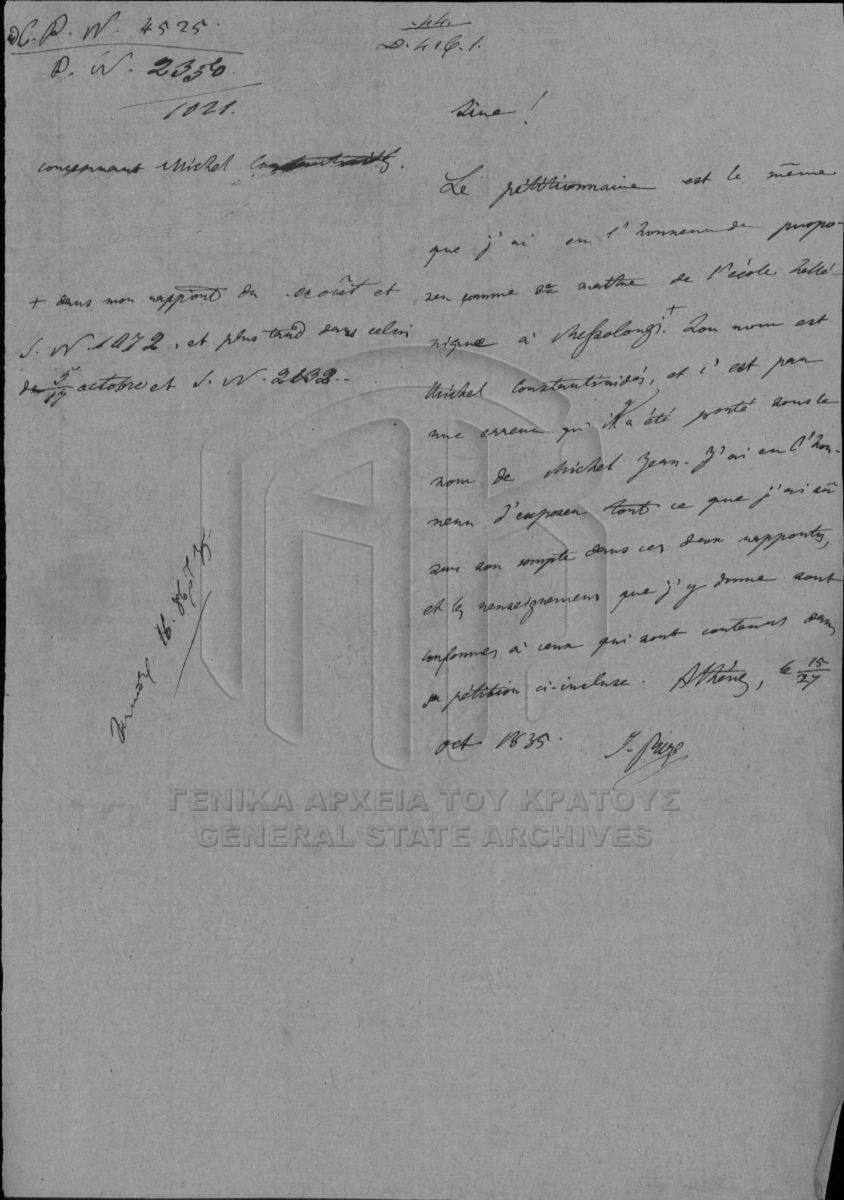 C. P. N. 4525.
P. N. 2350.
1021.
44.
D. 4. C. 1.
Sire !
concernant Michel
Le pétitionnaire est le même
que j'ai eu l'honneur de propo-
ser comme 2e maître de l'école hellé-
nique à Messolongi.+ Son nom est
Michel Constantinidès, et c'est par
une erreur qu'il a été porté sous le
nom de Michel Jean. J'ai eu l'hon-
neur d'exposer tout ce que j'ai sû
sur son compte dans ces deux rapports,
et les renseignemens que j'y donne sont
conformes à ceux qui sont contenus dans
sa pétition ci-incluse. Athènes, le 15/27
oct 1835.
+ dans mon rapport du août et
S. N. 1072, et plus tard dans celui
de 5/17 octobre et S. N. 2132.
ΓΕΝΙΚΑ ΑΡΧΕΙΑ ΤΟΥ ΚΡΑΤΟΥΣ
GENERAL STATE ARCHIVES